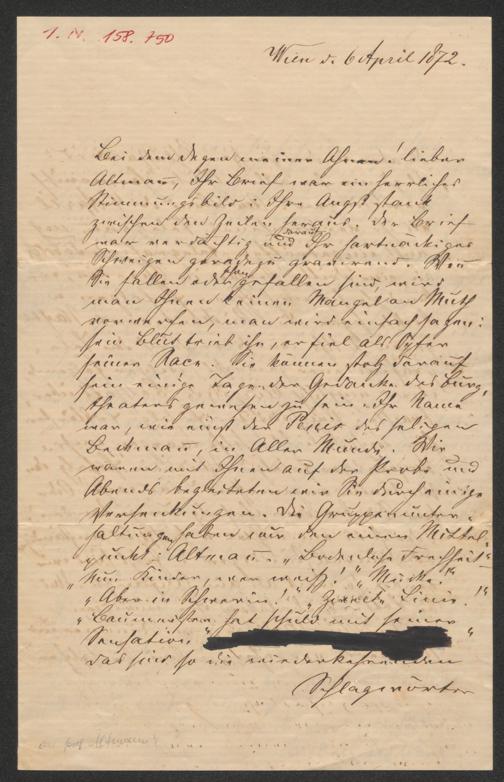 I. N. 158.750
Wien d. 6 April 1872.
Bei dem Degen meiner Ahnen! lieber
Altmann, Ihr Brief war ein herrliches
Stimmungsbild; Ihre Angst stank
zwischen den Zeilen heraus. Der Brief
war verdächtig und Ihr hartnäckiges
darauf
Schweigen geradezu gravirend. Wenn
Sie fallen oder gefallen sind, wird
man Ihnen keinen Mangel an Muth
vorwerfen, man wird einfach sagen:
sein Blut trieb ihn, er fiel als Opfer
seiner Race. Sie können stolz darauf
sein einige Tage der Gedanke des Burg-
theaters gewesen zu sein. Ihr Name
war, wie einst der Penis des seligen
Beckmann, in Aller Munde. Wir
waren mit Ihnen auf der Probe und
Abends begleiteten wir Sie durch einige
Versenkungen. Die Gruppenunter-
haltungen haben nur den einen Mittel-
punkt: Altmann. „Bodenlose Frechheit"
„Nun Kinder, wer weiß!"
„Aber in Schwerin!" Linie!"
„Baumeister hat Schuld mit seiner
Sensation"
das sind so die wiederkehrenden
Schlagwörter